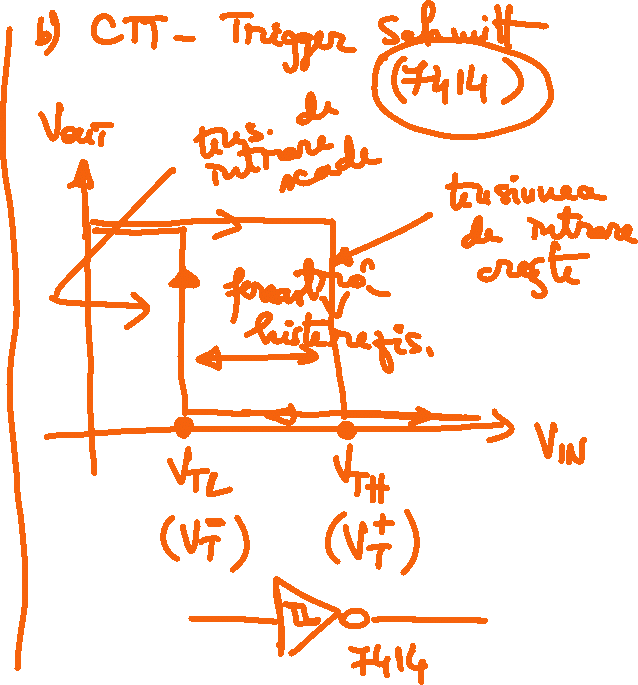 b) CTT - Trigger Schmitt
(7414)
VOUT
tens. de
intrare
scade
tensiunea
de intrare
crește
fereastră
histerezis.
VTL
VTH
VIN
(VT-)
(VT+)
7414